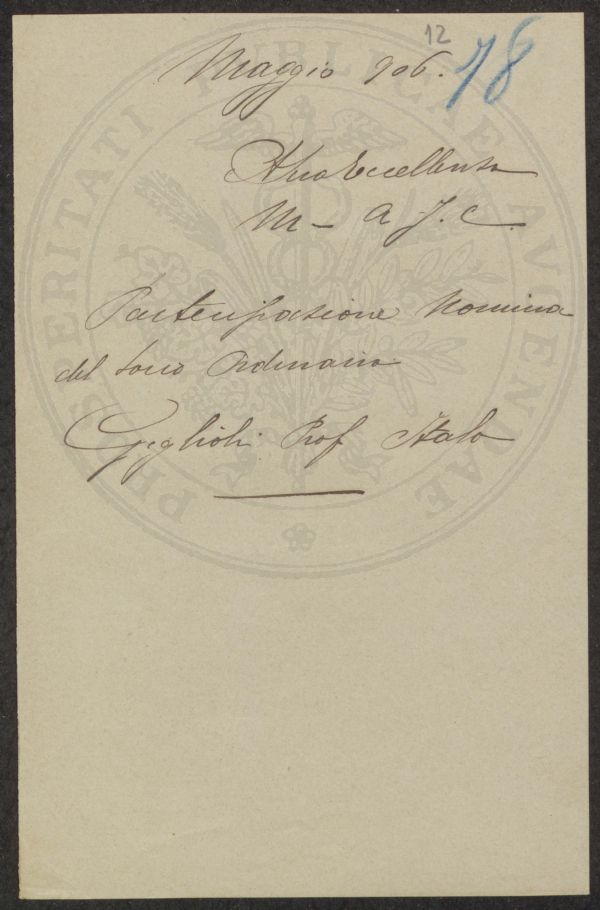 12
Maggio 906. 78
A Sua Eccellenza
M - A J. C.
Partecipazione Nomina
del Socio Ordinario
Giglioli Prof Italo
PROSPERITATI PUBLICAE AUGENDAE